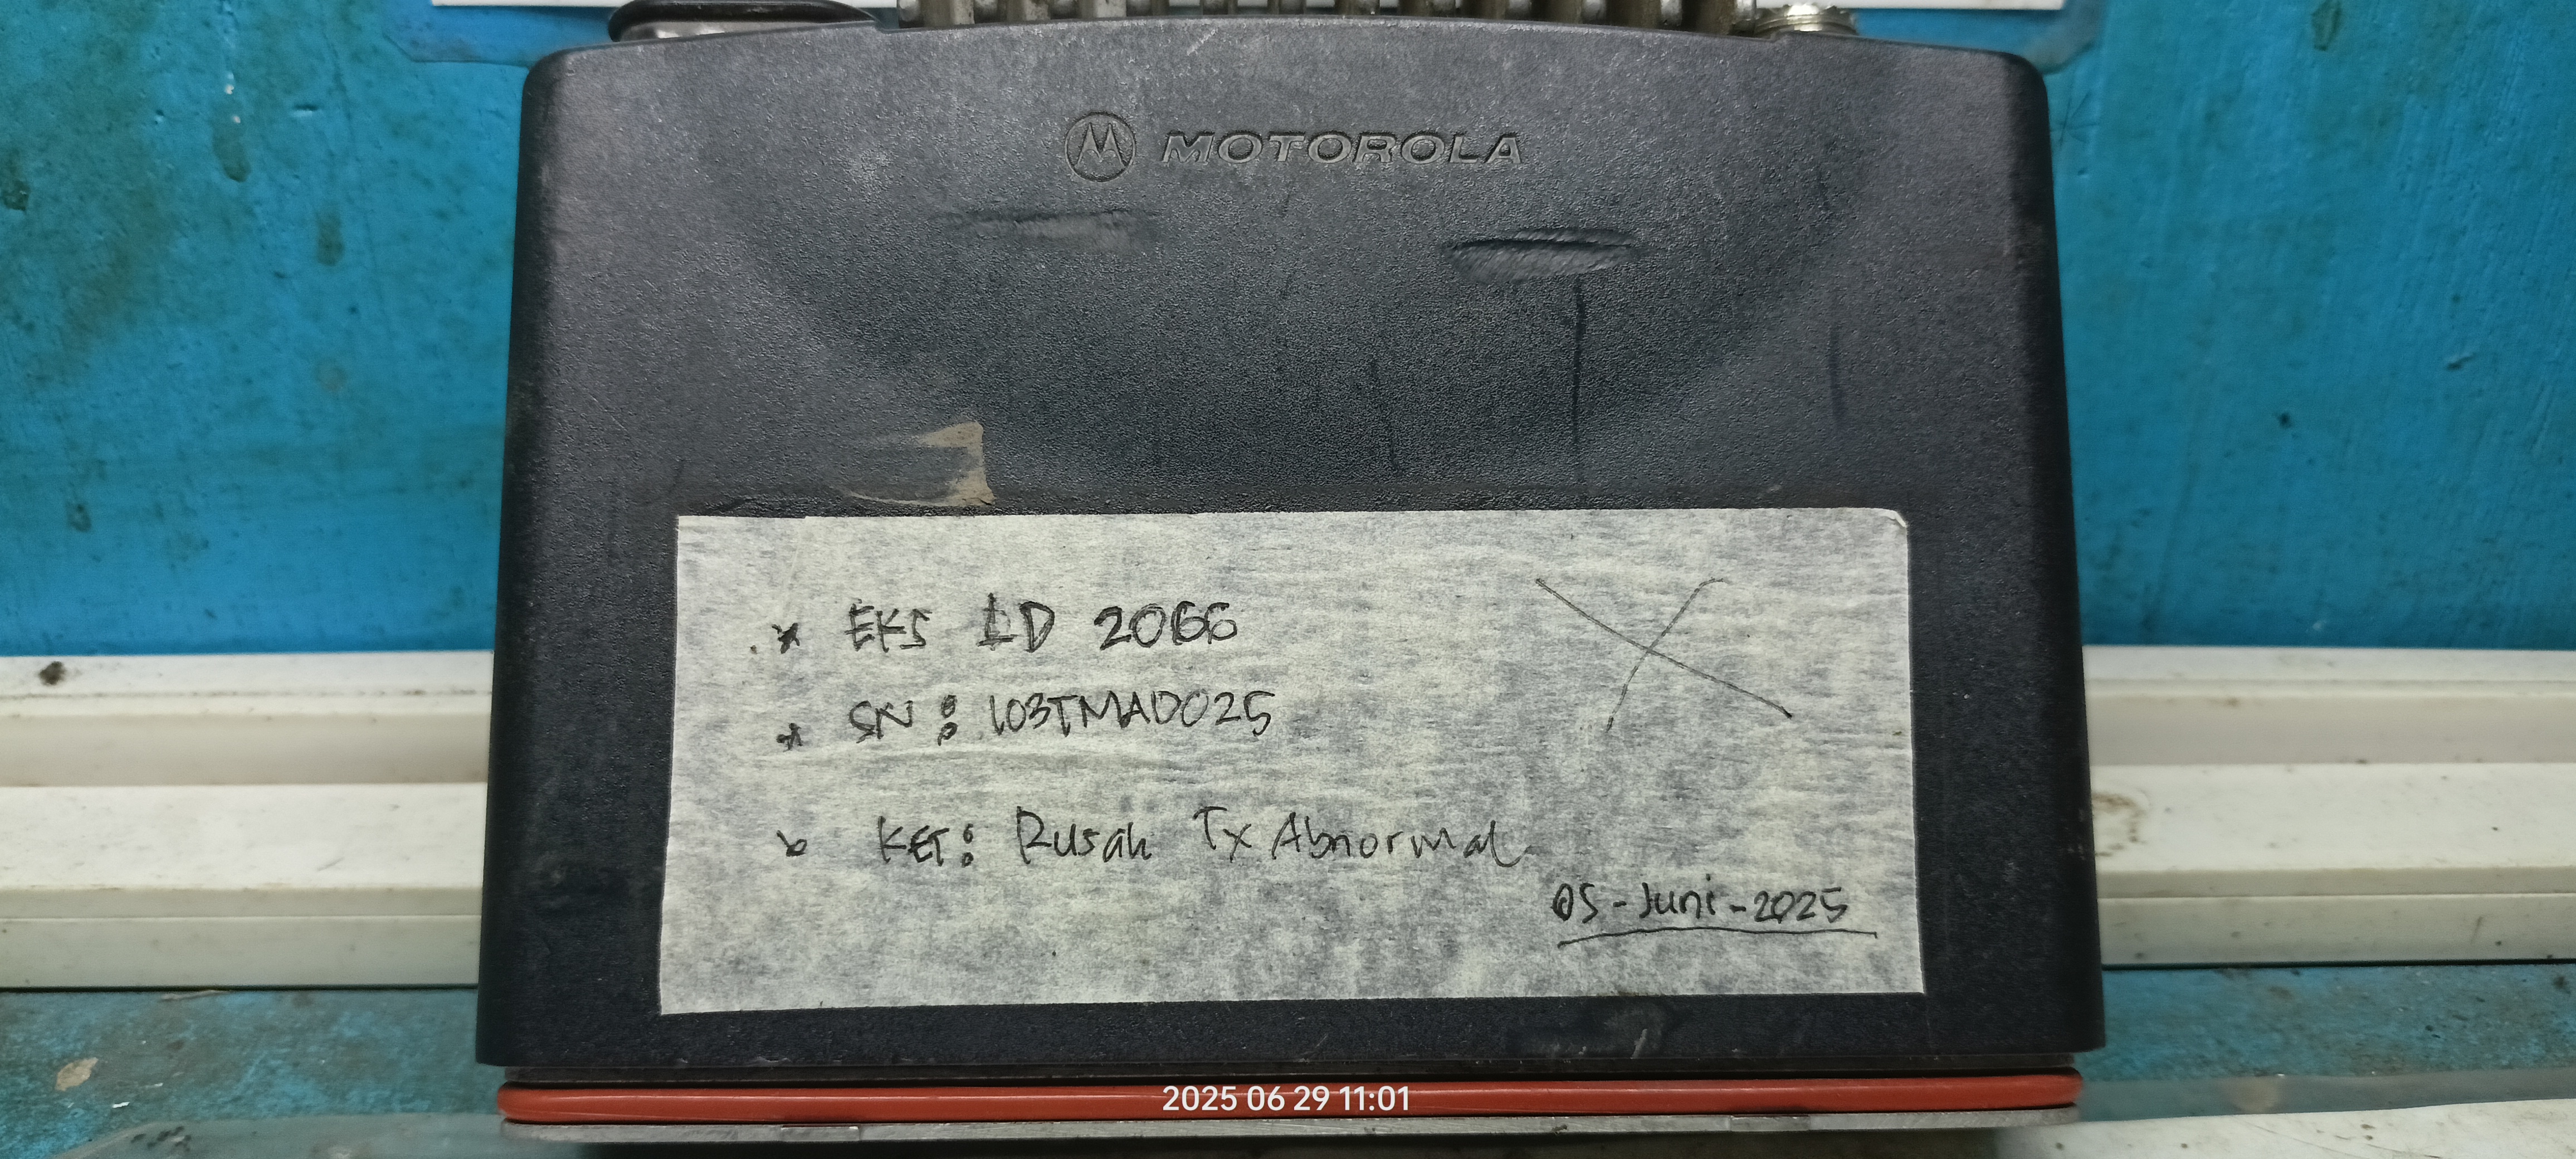 MOTOROLA
* EKS LD 2066
* SN : 103TMAD025
* KET : Rusak Tx Abnormal
05-Juni-2025
2025 06 29 11:01